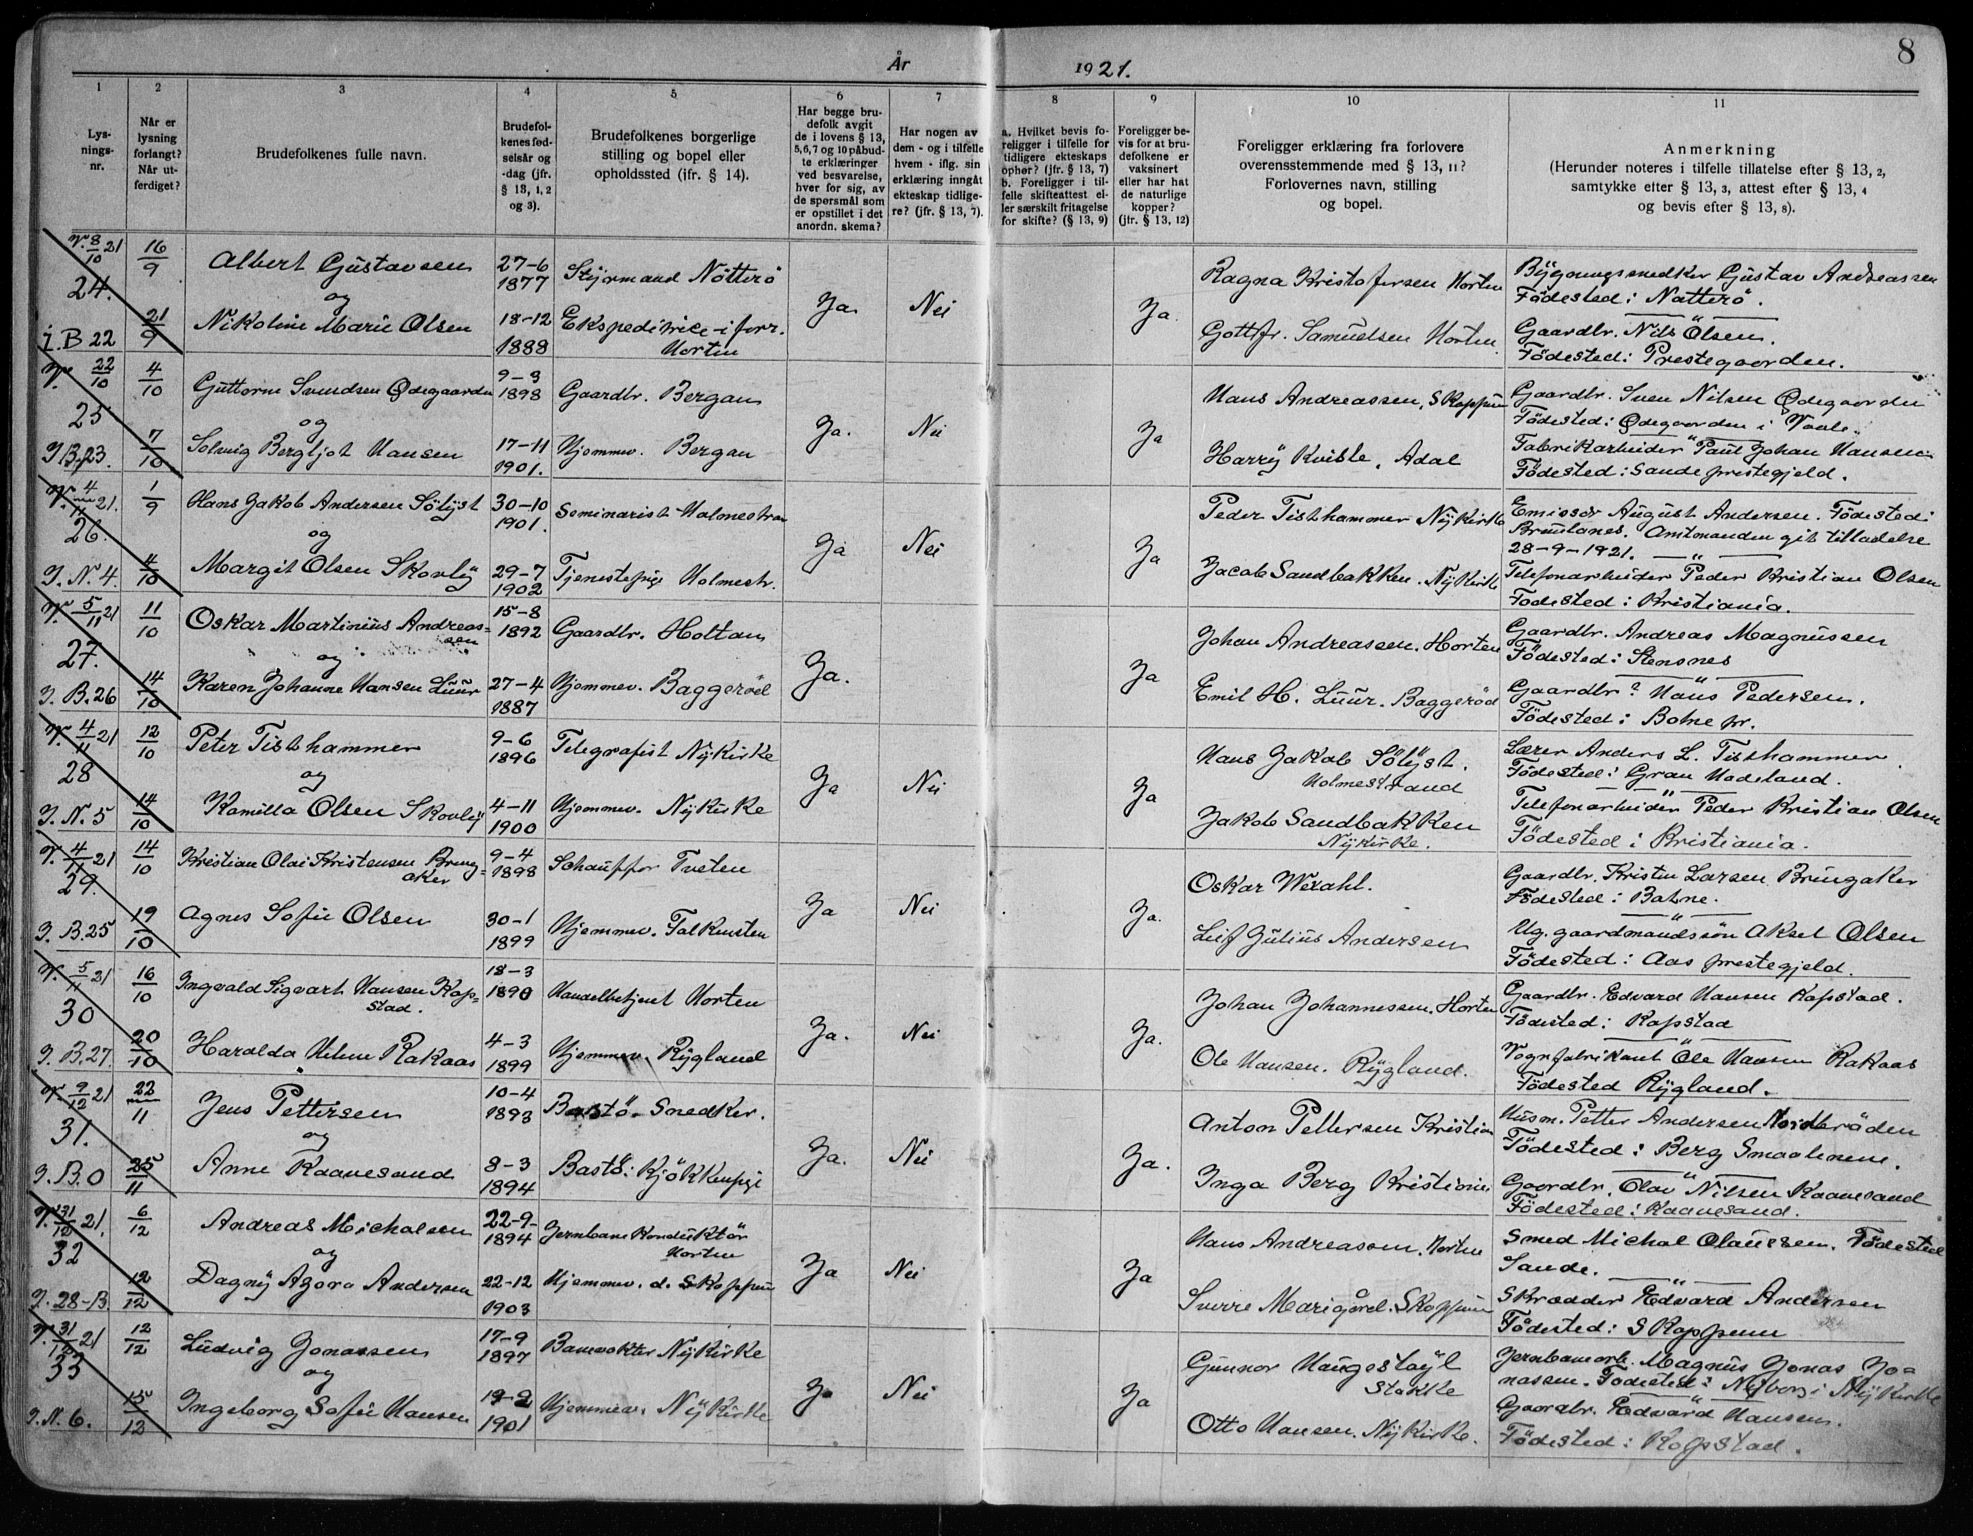 8
År 1921.
1 2 3 4 5 6 7 8 9 10 11
Lys-
nings-
nr.
Når er
lysning
forlangt?
Når ut-
ferdiget?
Brudefolkenes fulle navn.
Brudefol-
kenes fød-
selsår og
-dag (jfr.
§ 13, 1, 2
og 3).
Brudefolkenes borgerlige
stilling og bopel eller
opholdssted (ifr. § 14).
Har begge bru-
defolk avgit
de i lovens § 13,
5, 6, 7 og 10 påbud-
te erklæringer
ved besvarelse,
hver for sig, av
de spørsmål som
er opstillet i det
anordn. skema?
Har nogen av
dem - og i tilfelle
hvem - iflg. sin
erklæring inngåt
ekteskap tidlige-
re? (jfr. § 13, 7).
a. Hvilket bevis fo-
religger i tilfelle for
tidligere ekteskaps
ophør? (jfr. § 13, 7)
b. Foreligger i til-
felle skifteattest el-
ler særskilt fritagelse
for skifte? (§ 13, 9)
Foreligger be-
vis for at bru-
defolkene er
vaksinert
eller har hat
de naturlige
kopper?
(jfr. § 13, 12)
Foreligger erklæring fra forlovere
overensstemmende med § 13, 11?
Forlovernes navn, stilling
og bopel.
Anmerkning
(Herunder noteres i tilfelle tillatelse efter § 13, 2,
samtykke etter § 13, 3, attest efter § 13, 4
og bevis efter § 13, 8).
V. 8/10 21 16/9 Albert Gustavsen 27-6 1877 Styrmand Nötterö Ragna Kristofersen Horten Bygningssnedker Gustav Andreassen
Födested: Nötterö.
24. og Ja. Nei Ja
i. B 22 21/9 Nikoline Marie Olsen 18-12 1888 Ekspeditrice i forr. Horten Gottfr. Samuelsen Horten. Gaardbr. Nils Olsen.
Födested: Prestegaarden.
V. 22/10 4/10 Guttorm Svendsen Ødegaarden 9-3 1898 Gaardbr. Bergan Hans Andreassen, Skoppum Gaardbr. Sven Nilsen Ødegaarden
Födested: Ødegaarden i Vaale.
25 og Ja. Nei Ja
I B. 23. 7/10 Solveig Bergljot Hansen 17-11 1901. Hjemmev. Bergan Harry Kvisle, Adal Fabrikarbeider Paul Johan Hansen
Födested: Sande prestegjeld.
V. 4/11 21. 1/9 Hans Jakob Andersen Sölyst 30-10 1901. Seminarist Holmestran Peder Tisthammer Nykirke Emissær August Andersen. Födested:
Amtmanden git tilladelse
28-9-1921.
26. og Ja Nei Ja
I. N. 4. 4/10 Margit Olsen Skovly 29-7 1902 Tjenestepige Holmestr. Jacob Sandbakken. Nykirke Telefonarbeider Peder Kristian Olsen
Födested: Kristiania.
V. 5/11 21 11/10 Oskar Martinius Andreas-
sen 15-8 1892 Gaardbr. Holtan Johan Andreassen. Horten Gaardbr. Andreas Magnussen
Födested: Stensnes
27. og Ja. Ja
I. B. 26 14/10 Karen Johanne Hansen Luur 27-4 1887 Hjemmev. Baggeröd Emil H. Luur. Baggeröd Gaardbr. Hans Pedersen.
Födested: Botne pr.
V. 4/11 21 12/10 Peter Tisthammer 9-6 1896 Telegrafist Nykirke Hans Jakob Sölyst.
Holmestrand Lærer Anders L. Tisthammer.
Födested: Gran Hadeland.
28 og Ja Nei Ja
I. N. 5 14/10 Kamilla Olsen Skovly 4-11 1900 Hjemmev. Nykirke Jakob Sandbakken
Nykirke. Telefonarbeider Peder Kristian Olsen
Födested i Kristiania.
V. 4/11 21 14/10 Kristian Olai Kristensen Bring-
aker 9-4 1898 Schauffør Tveten Oskar Wexahl. Gaardbr. Kristen Larsen Bringaker
Födested: Botne.
29. Ja Nei Ja.
I. B. 25 19/10 Agnes Sofie Olsen 30-1 1899 Hjemmev. Falkensten Leif Julius Andersen Ug. gaardmandssön Aksel Olsen
Födested: Aas prestegjeld.
V. 5/11 21 16/10 Ingvald Sigvart Hansen Kop-
stad. 18-3 1890 Handelbetjent Horten Johan Johannessen. Horten Gaardbr. Edvard Hansen Kopstad.
Födested: Kopstad
30 Ja. Nei Ja.
I. B. 27. 20/10 Haralda Helene Rakaas 4-3 1899 Hjemmev. Rygland Ole Hansen. Rygland. Vognfabrikant Ole Hansen Rakaas
Födested Rygland.
V. 9/12 21 22/11 Jens Pettersen 10-4 1893 Bastö Snedker. Anton Pettersen Kristian Husm. Petter Andersen
Födested: Berg Smaalenene.
31. og Ja. Nei Ja.
I. B. 0 25/11 Anne Kaavesand 8-3 1894 Bastö: Kjökkenpige Inga Berg Kristiania Gaardbr. Olav Nilsen Kaavesand
Födested: Kaavesand.
V. 31/12 21. 6/12 Andreas Michalsen 22-9- 1894 Jernbane Konduktör
Horten Hans Andreassen. Horten Smed Michal Olaussen. Födested
Sande.
32 og Ja Nei Ja
I. 28-B. 12/12 Dagny Agora Andersen 22-12 1903 Hjemmev. d. Skoppum Sverre Marigård. Skoppum Skrædder Edvard Andersen
Födested: Skoppum
V. 31/12 21 12/12 Ludvig Jonassen 17-9 1897 Banevokter Nykirke Gunnar
Stokke Jernbanearb. Magnus Jonas Jo-
nassen. Födested: Nyborg i Nykirke
33 og Ja Nei Ja
I. N. 6. 15/12 Ingeborg Sofie Hansen 19-2 1901 Hjemmev. Nykirke Otto Hansen. Nykirke. Gaardbr. Edvard Hansen.
Födested: Kopstad.